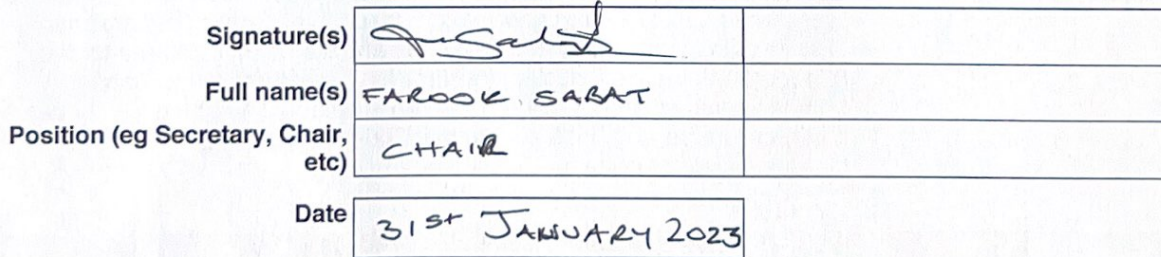 Signature(s)
Full name(s) FAROOK SABAT
Position (eg Secretary, Chair,
etc) CHAIR
Date 31st JANUARY 2023